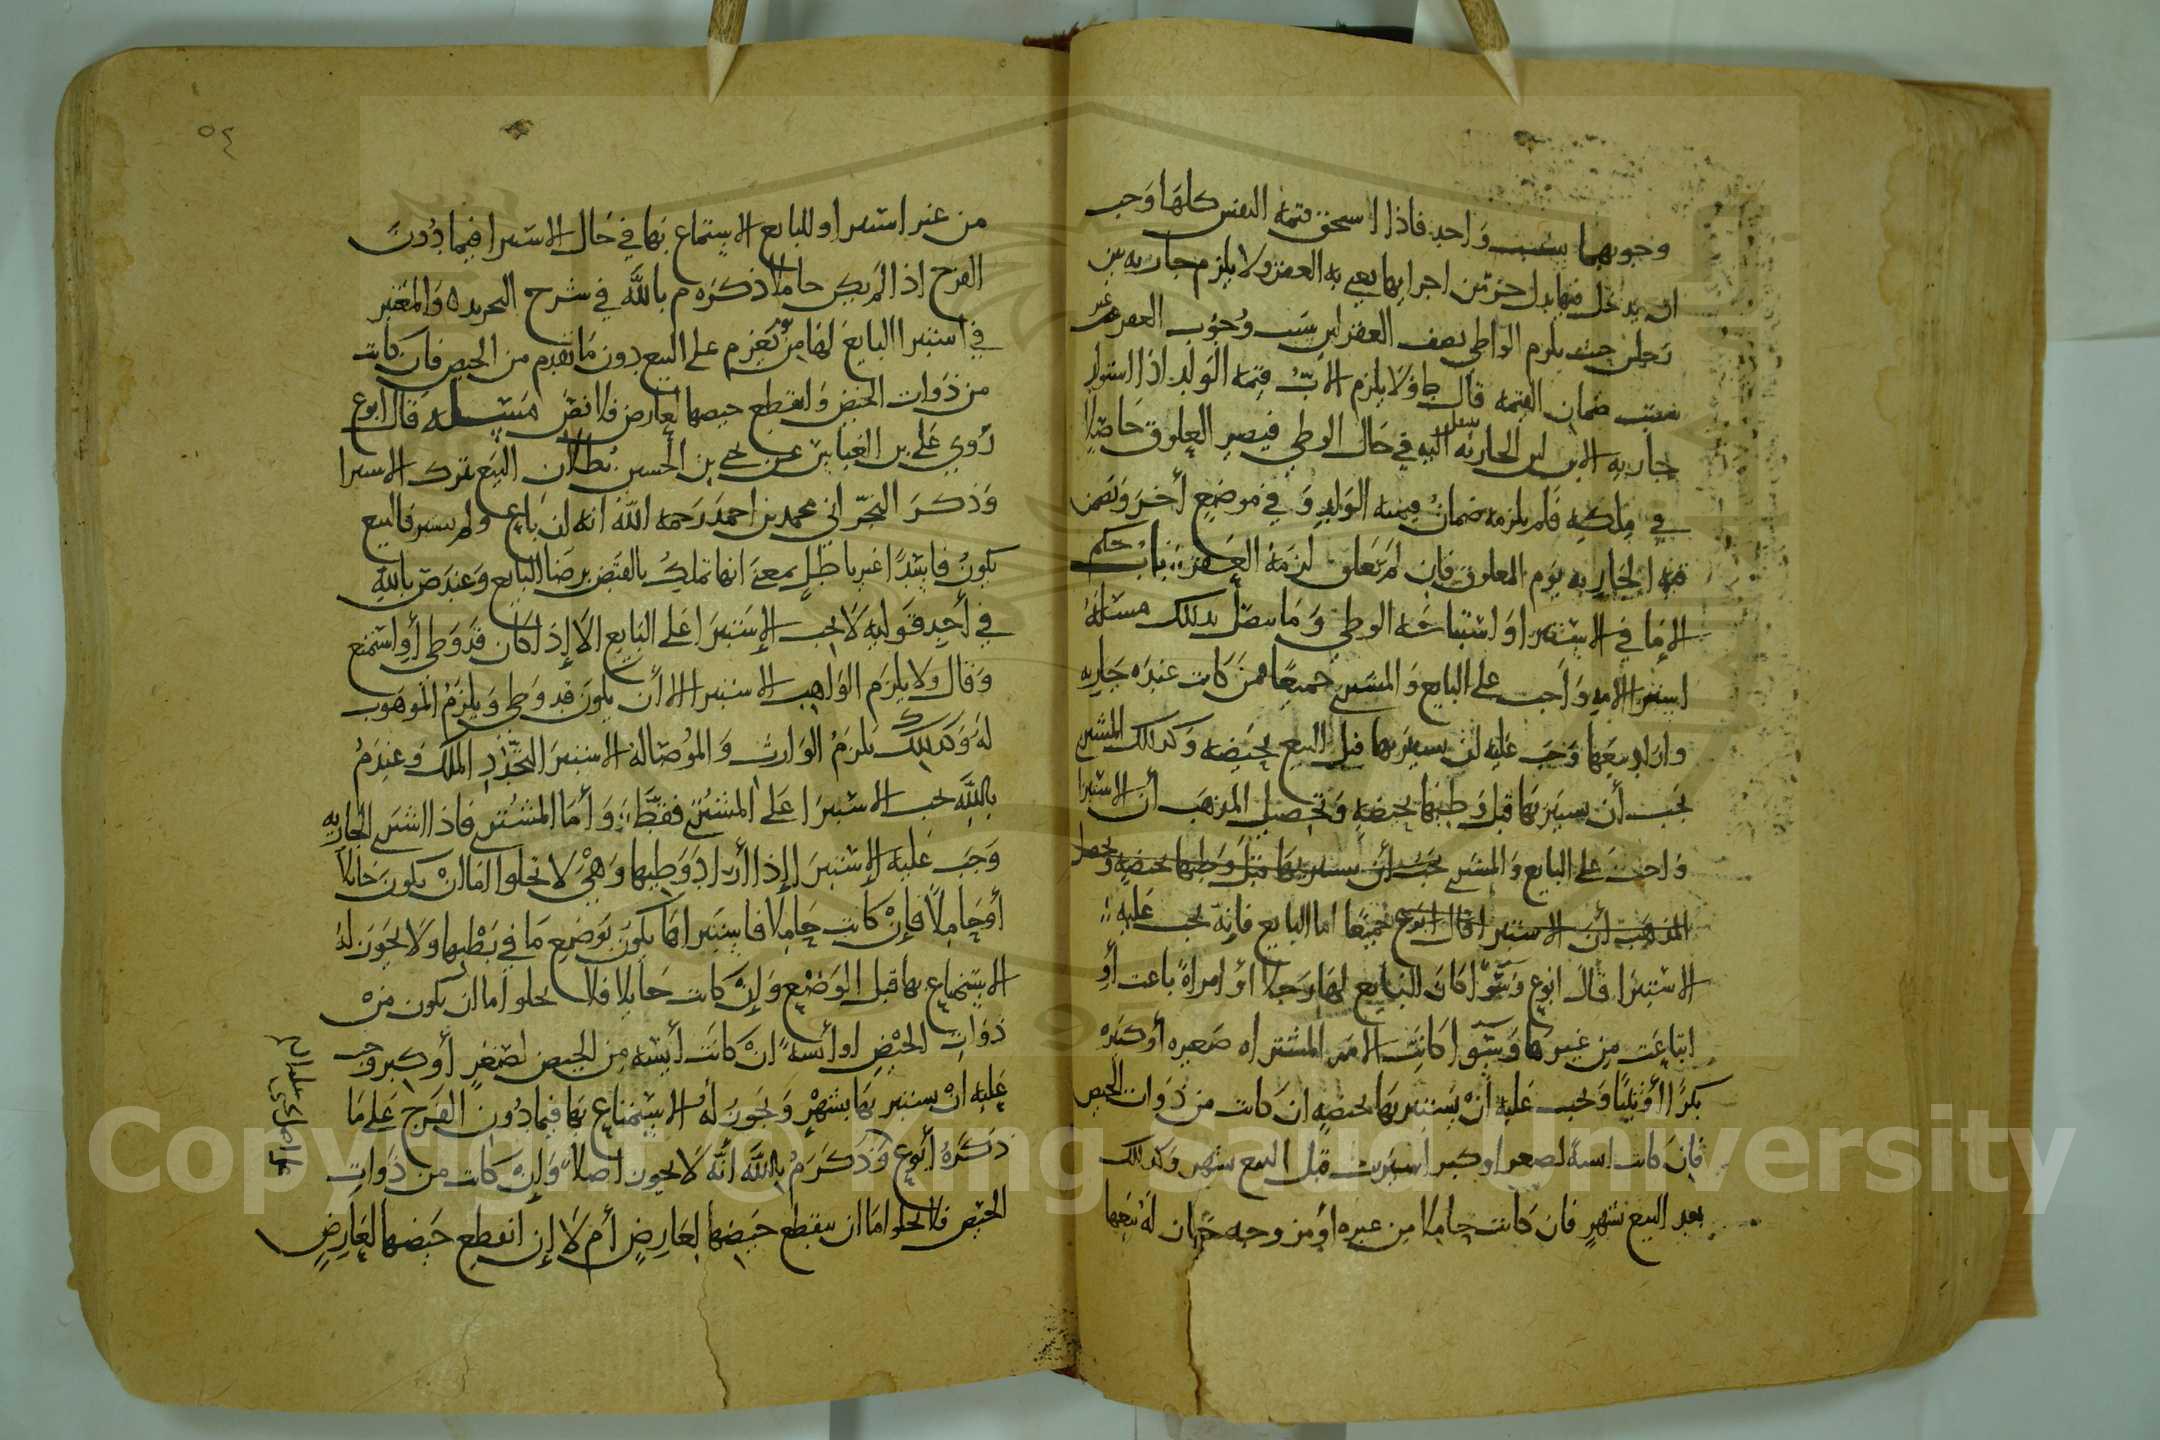 وجوبهما بسبب واحد فاذا استحق قيمة النفس كلها وجب
ان يدخل فيها بدل جزء من اجزايها يعني به العقر ولا يلزم جارية بين
رجلين حيث يلزم الواطي نصف العقر لان سبب وجوب العقر غير
سبب ضمان القيمة قال ط ولا يلزم الاب قيمة الولد اذا استولد
جارية الابن لان الجارية اليه في حال الوطي فيصير العلوق حاصلا
في ملكه فلم يلزمه ضمان قيمة الولد و في موضع أخر ويضمن
قيمة الجارية يوم العلوق فإن لم تعلق لزمه العقر باب حكم
الإما في الاستبرا و استباحة الوطي وما يتصل بذلك مسئلة
استبرا الامة واجب على البايع و المشتري جميعًا فمن كانت عنده جارية
واراد بيعها وجب عليه ان يستبريها قبل البيع بحيضة وكذلك المشتري
يجب أن يستبريها قبل وطيها بحيضة وتحصيل المذهب أن الاستبرا
واجب على البايع و المشتري يجب أن يستبريها قبل وطيها بحيضة وتحصيل
المذهب أن الاستبرا قال ابوع جميعًا اما البايع فإنه يجب عليه
الاستبرا قال ابوع وسوا كان البايع لها رجلا او امراة باعت أو
ابتاعت من غيرها وسوا كانت الامة المشتراه صغيره أو كبيره
بكرًا أو ثيبًا ويجب عليه أن يستبريها بحيضة ان كانت من ذوات الحيض
فان كانت ايسة لصغر او كبر استبريت قبل البيع بشهر وكذلك
بعد البيع بشهر فان كانت حاملا من غيره أو من وجه جان له بيعها
٥٤
من غير استبرا و للبايع الاستمتاع بها في حال الاستبرا فيما دون
الفرج اذ الم يكن حاملا ذكره م بالله في شرح التجريد و المعتبر
في استبرا البايع لها من يوم يعزم على البيع دون ما تقدم من الحيض فان كانت
من ذوات الحيض و انقطع حيضها لعارض فلا نص مسئلة قال ابوع
روي علي بن العباس عن يحيى بن الحسين بطلان البيع بترك الاستبرا
وذكر البحراني محمد بن احمد رحمه الله انه ان باع ولم يستبر فالبيع
يكون فاسدًا غير باطل بمعنى انها تملك بالقبض برضا البايع وعند ص بالله
في أحد قوليه لا يجب الإستبرا على البايع الا إذا كان قد وطي أو استمتع
وقال ولا يلزم الواهب الاستبرا الا أن يكون قد وطي ويلزم الموهوب
له وكذلك يلزم الوارث و الموصا له الاستبرا لتجدد الملك وعند م
بالله يجب الاستبرا على المشتري فقط وأما المشتري فاذا اشترى الجارية
وجب عليه الإستبرا إذا أراد وطيها وهي لا تخلوا اما ان تكون حايلا
أو حاملاً فإن كانت حاملا فاستبراها يكون بوضع ما في بطنها ولا يجوز له
الاستمتاع بها قبل الوضع وإن كانت حايلا فلا تخلو اما ان يكون من
ذوات الحيض او أيسةً ان كانت أيسة من الحيض لصغر أو كبر وجب
عليه ان يستبريها بشهر ويجوز له الاستمتاع بها فيما دون الفرج على ما
ذكره أبوع وذكر م بالله أنه لا يجوز اصلاً وإن كانت من ذوات
الحيض فلا تخلو اما ان ينقطع حيضها لعارض أم لا إن انقطع حيضها لعارض
Copyright © King Saud University